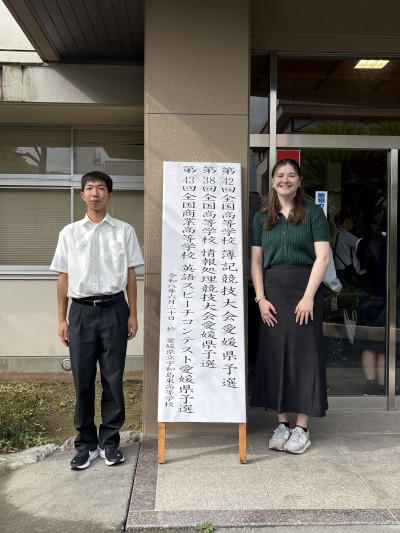 第42回全国高等学校 簿記競技大会愛媛県予選
第38回全国高等学校 情報処理競技大会愛媛県予選
第43回全国商業高等学校 英語スピーチコンテスト愛媛県予選
令和八年六月二十日 於 愛媛県立宇和島東高等学校